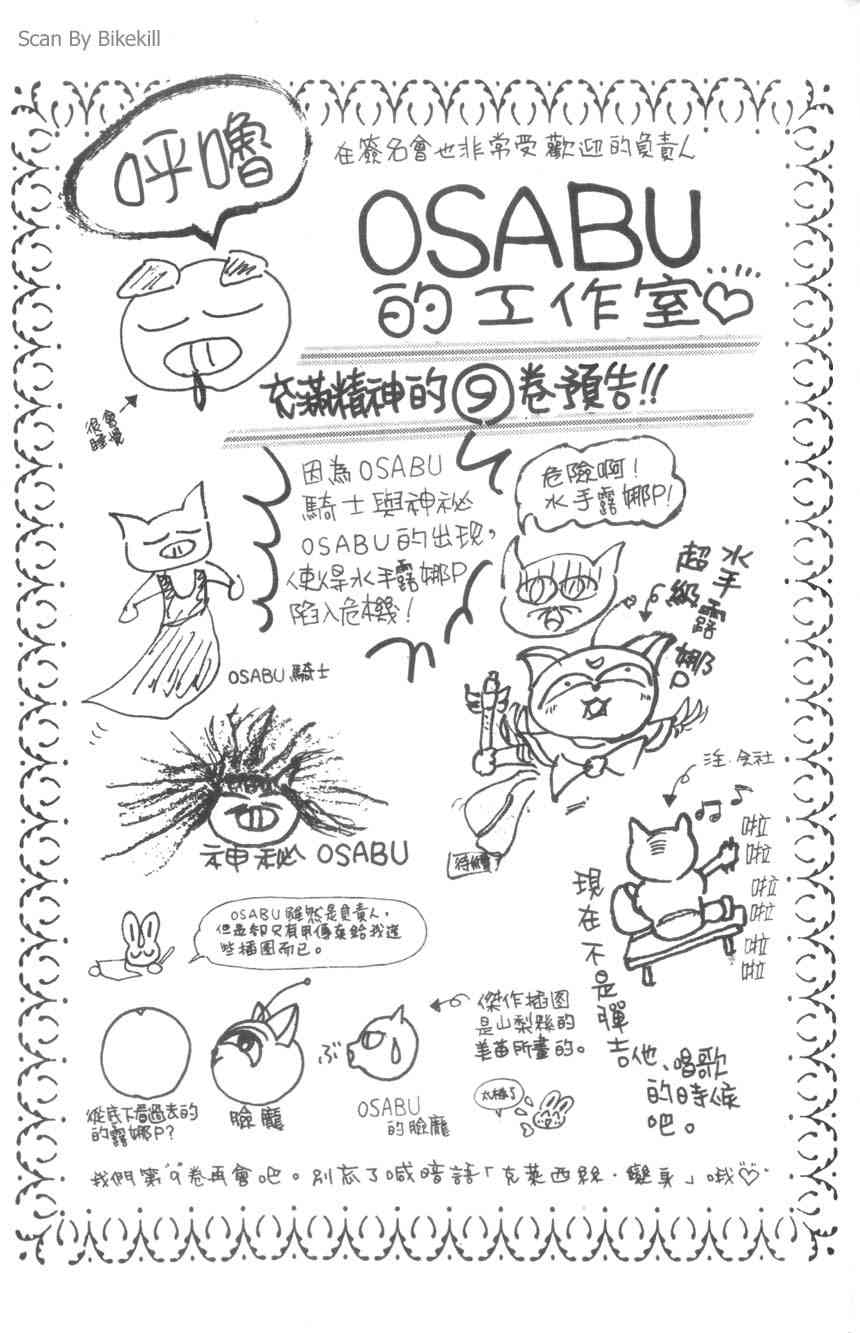 Scan By Bikekill
呼嚕
在簽名會也非常受歡迎的負責人
OSABU
的工作室♡
充滿精神的⑨卷預告!!
很會
睡覺
因為OSABU
騎士與神祕
OSABU的出現,
使得水手露娜P
陷入危機!
危險啊!
水手露娜P!
超級
水手露娜P
OSABU騎士
神秘 OSABU
待續
注.会社
♫ ♪
啦
啦
啦
啦
啦
啦
現在不是彈吉他、唱歌
的時候
吧。
OSABU雖然是負責人,
但是卻只有用傳真給我這
些插图而已。
傑作插图
是山梨縣的
美苗所畫的。
ぶ
從底下看過去的
的露娜P?
臉龐
OSABU
的臉龐
太棒了
我們第9卷再會吧。別忘了喊暗語「克萊西絲·變身」哦♡